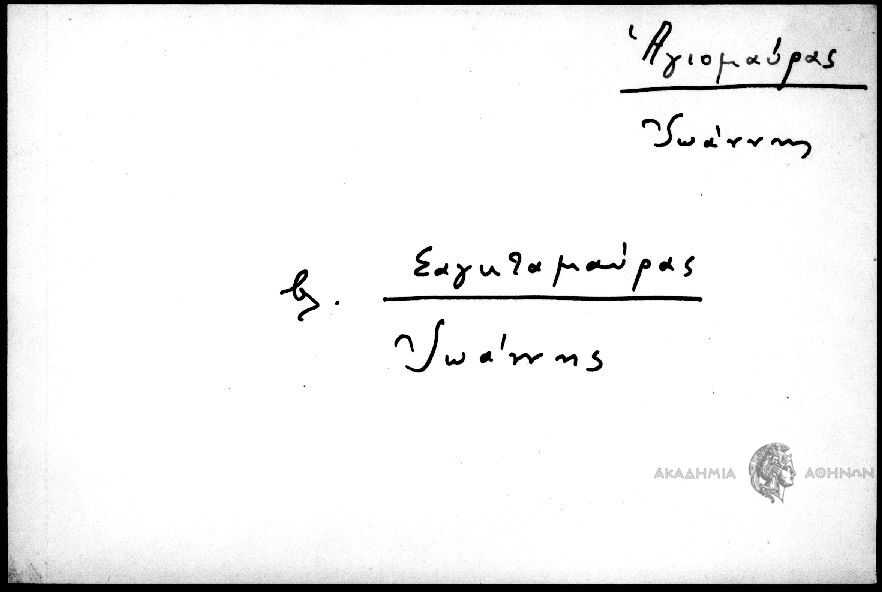 Ἁγιομαύρας
Ἰωάννης
βλ.
Σαγκταμαύρας
Ἰωάννης
ΑΚΑΔΗΜΙΑ ΑΘΗΝΩΝ